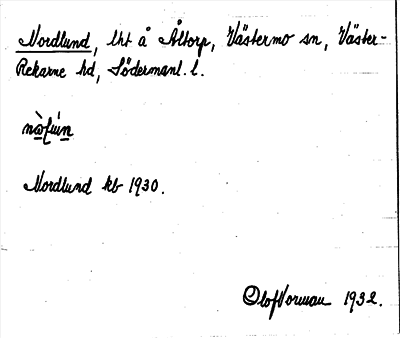 Nordlund, lht å Åltorp, Västermo sn, Väster-
Rekarne hd, Södermanl. l.
Nordlund kb 1930.
Olof Vorman 1932.